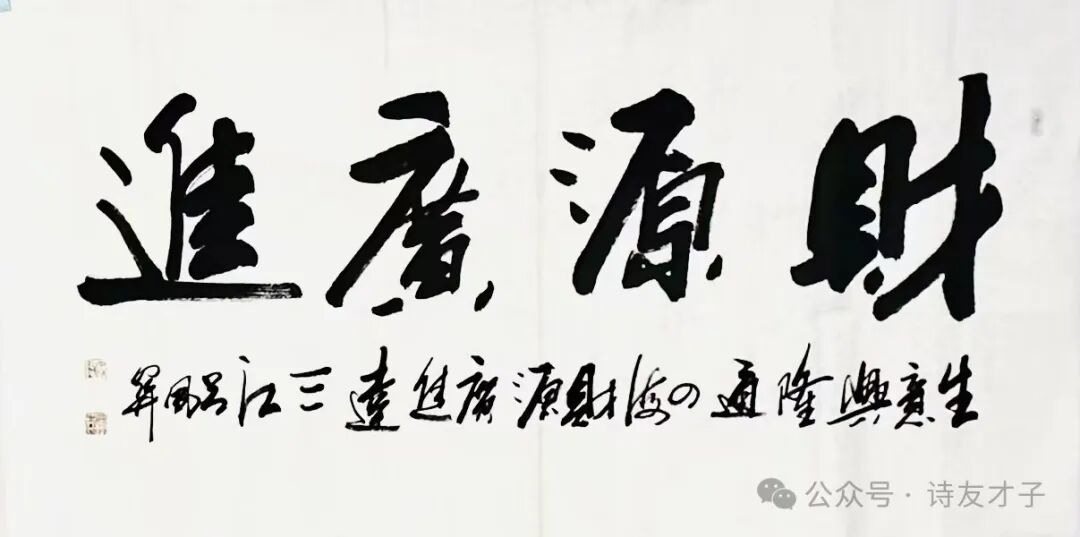 財源廣進
生意興隆通四海財源廣進達三江
公众号 · 诗友才子